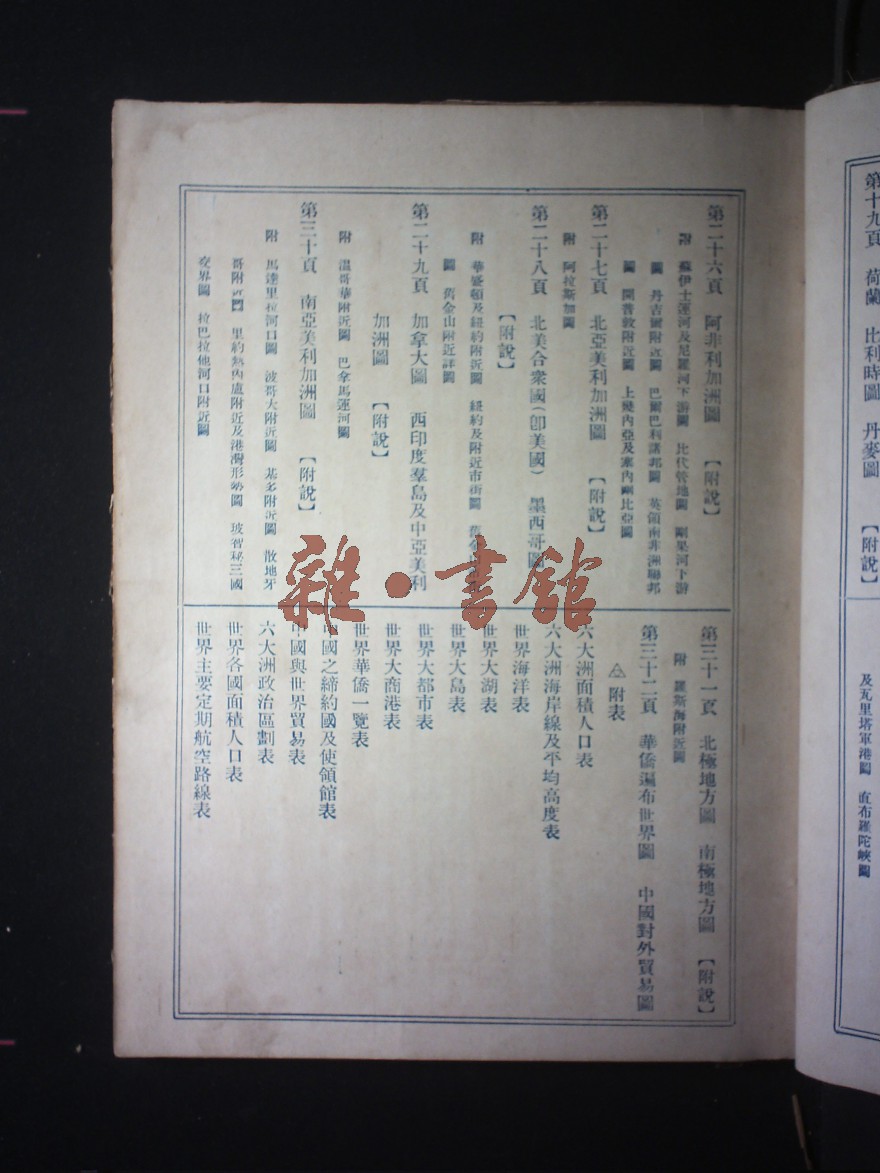 第二十六頁　阿非利加洲圖　【附說】
附　蘇伊士運河及尼羅河下游圖　比代管地圖　剛果河下游
圖　丹吉爾附近圖　巴爾巴利諸邦圖　英領南非洲聯邦
圖　開普敦附近圖　上幾內亞及塞內岡比亞圖
第二十七頁　北亞美利加洲圖　【附說】
附　阿拉斯加圖
第二十八頁　北美合衆國(卽美國)　墨西哥圖
【附說】
附　華盛頓及紐約附近圖　紐約及附近市街圖　舊金山
圖　舊金山附近詳圖
第二十九頁　加拿大圖　西印度羣島及中亞美利
加洲圖　【附說】
附　溫哥華附近圖　巴拿馬運河圖
第三十頁　南亞美利加洲圖　【附說】
附　馬達里拉河口圖　波哥大附近圖　基多附近圖　散地牙
哥附近圖　里約熱內盧附近及港灣形勢圖　玻智秘三國
交界圖　拉巴拉他河口附近圖
第三十一頁　北極地方圖　南極地方圖　【附說】
附　羅斯海附近圖
第三十二頁　華僑遍布世界圖　中國對外貿易圖
附表
六大洲面積人口表
六大洲海岸線及平均高度表
世界海洋表
世界大湖表
世界大島表
世界大都市表
世界大商港表
世界華僑一覽表
中國之締約國及使領館表
中國與世界貿易表
六大洲政治區劃表
世界各國面積人口表
世界主要定期航空路線表
第十九頁　荷蘭　比利時圖　丹麥圖　【附說】
及瓦里塔軍港圖　直布羅陀峽圖
雜·書館